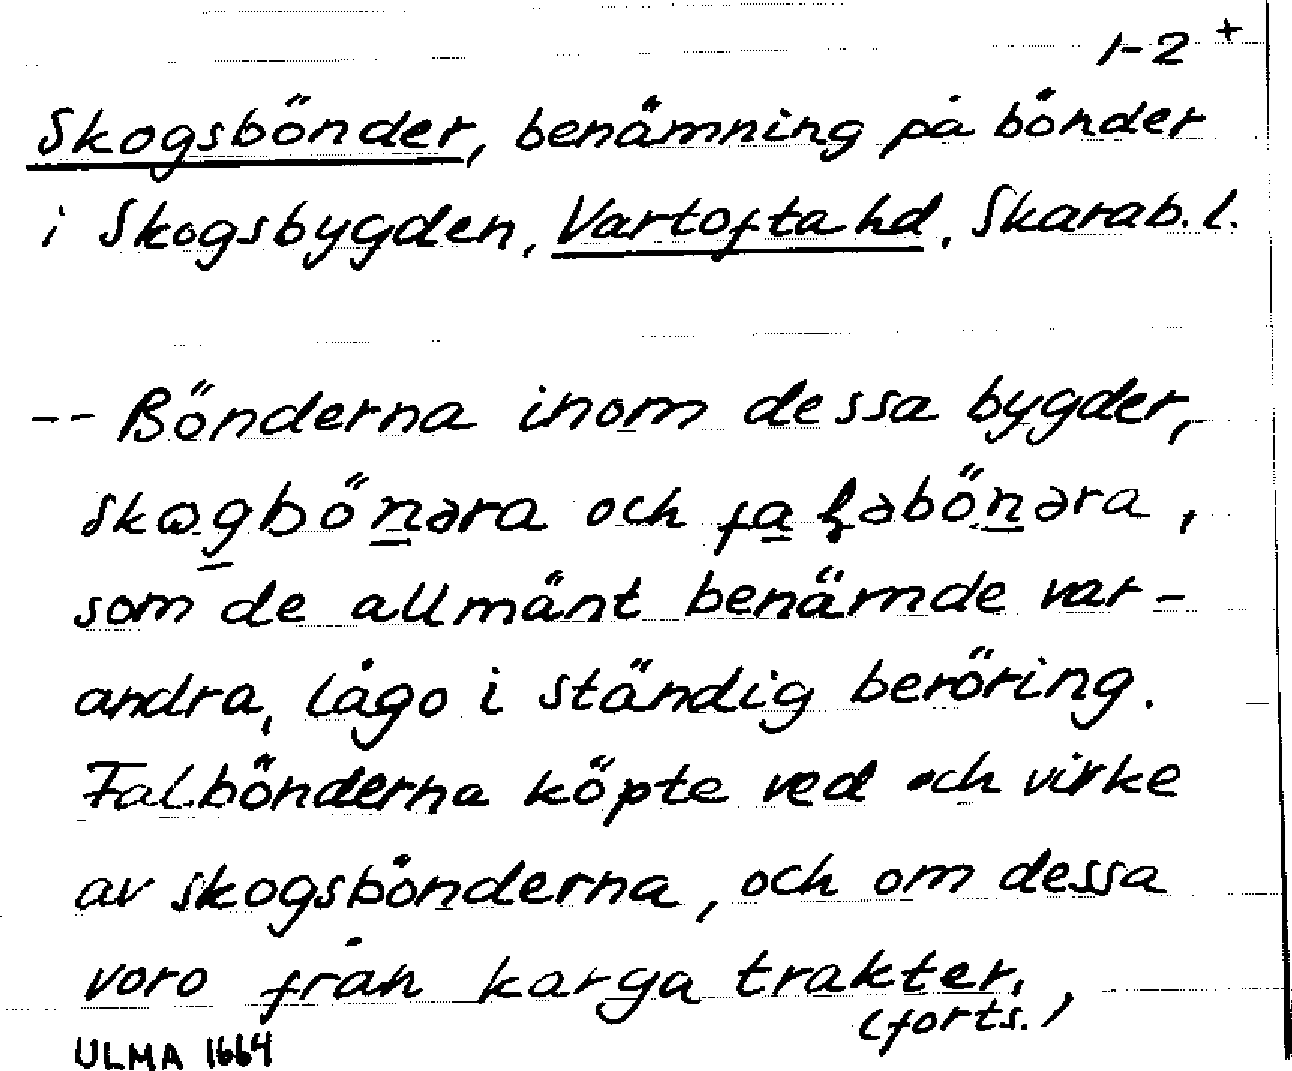 1-2 +
Skogsbönder, benämning på bönder
i Skogsbygden, Vartofta hd, Skarab. l.
-- Bönderna inom dessa bygder,
skogbönəra och faɫəbönəra,
som de allmänt benämde var-
andra, lågo i ständig beröring.
Falbönderna köpte ved och virke
av skogsbönderna, och om dessa
voro från karga trakter,
(forts.)
ULMA 1664